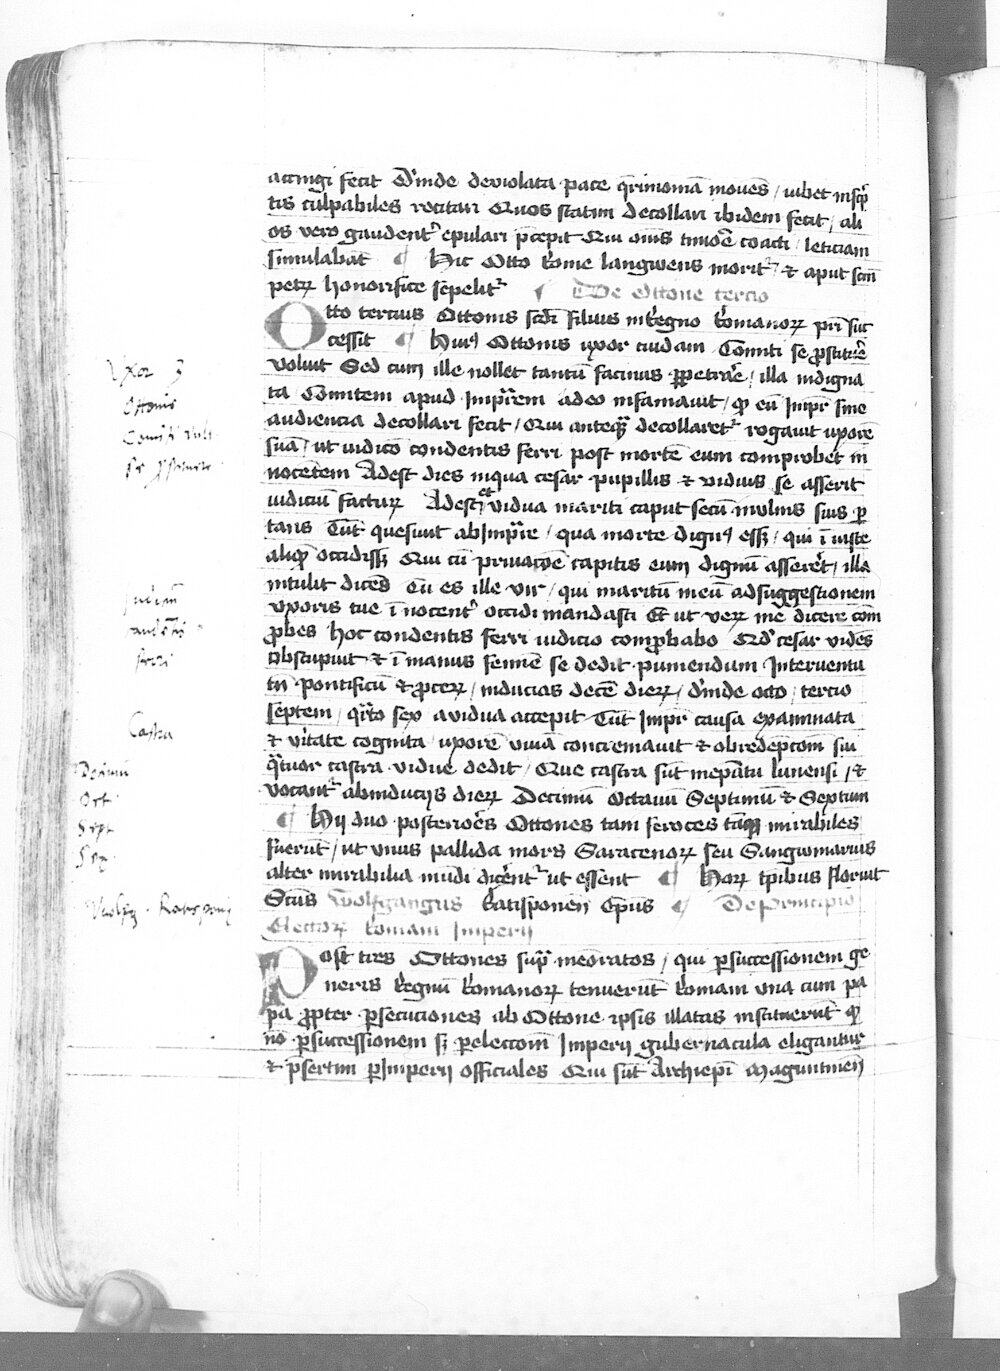 accingi fecit Deinde de violata pace q̄rimoniā mouēs / iubet in sc̄p
tis culpabiles recitari Quos statim decollari ibidem fecit / ali
os vero gaudentʳ epulari p̄cepit Qui om̄s timōe coacti / leticiam
simulabāt ¶ Hic Otto Rome langwens moritʳ ⁊ aput sc̄m
petꝝ honorifice sepelitʳ ¶ De Ottone tercio
Otto tercius Ottonis scd̓i filius in Regno Romanoꝝ pr̄i suc
cessit ¶ Huiꝰ Ottonis vxor cuidam Comiti se ꝓstitūe
voluit Sed cum ille nollet tantū facinus ꝑpetrāe / illa indigna
ta Comitem apud Imp̄rem adeo infamauit / ꝙ eū Impr̄ sine
audiencia decollari fecit / Qui anteqꝫ decollaretʳ rogauit vxorē
suā / ut iudicō condentis ferri post mortē eum comprobet in
nocētem Adest dies in qua cesar pupillis ⁊ viduis se asserit
iudiciū facturꝝ Adest et vidua mariti caput secū in vlnis suis por
tans Tūc quesiuit ab Imp̄re / qua morte dignꝰ essꝫ / qui īiuste
aliqꝫ occidissꝫ Qui cū priuacōe capitis eum dignū asserēt / illa
intulit dicēs Tu es ille vir / qui maritum meū ad suggestionem
vxoris tue īnocentʳ occidi mandasti Et ut veꝝ me dicere com
ꝓbes hoc condentis ferri iudicio comꝓbabo Qd̓ cesar vidēs
Obstupuit ⁊ ī manus femine se dedit puniendum Interuentu
tn̄ pontificū ⁊ ꝓceꝝ / inducias decē dieꝝ / deinde octo / tercio
septem / qr̄to sex a vidua accepit Tūc Impr̄ causa examinata
⁊ vītate cognita / vxorē viuā concremauit ⁊ ob redēpcōm sui
qͣtuor castra vidue dedit / Que castra sūt in ep̄atu lunensi / ⁊
vocantʳ ab inducijs dieꝝ Decimū Octauū Septimū ⁊ Sextum
¶ Hij duo posteriōes Ottones tam feroces tāqꝫ mirabiles
fuerūt / ut vnus pallida mors Saracenoꝝ seu Sangwinarius
alter mirabilia mūdi dicēntʳ ut essent ¶ Hoꝝ tp̄ibus floruit
Sctūs Wolfgangus Ratisponeñ Ep̄us ¶ De Principio
Electoꝝ Romani Imperij
Post tres Ottones sup̄ memōratos / qui ꝑ successionem ge
neris Regnū Romanoꝝ tenuerūt Romani vna cum pa
pa ꝓpter ꝑsecuciones ab Ottone ipsis illatas instituerūt ꝙ
nō ꝑ successionem sꝫ ꝑ eleccōm Imperij gubernacula eligantur
⁊ p̄sertim ꝑ Imperij officiales Qui sūt Archiepī Maguntineñ
Vxor 3
Ottonis
Comiti vult
se ꝓstituere
Iudiciū
candētis
ferri
Castra
Decimū
Oct
Sept
Sex
Wolfg. Ratisponeñ